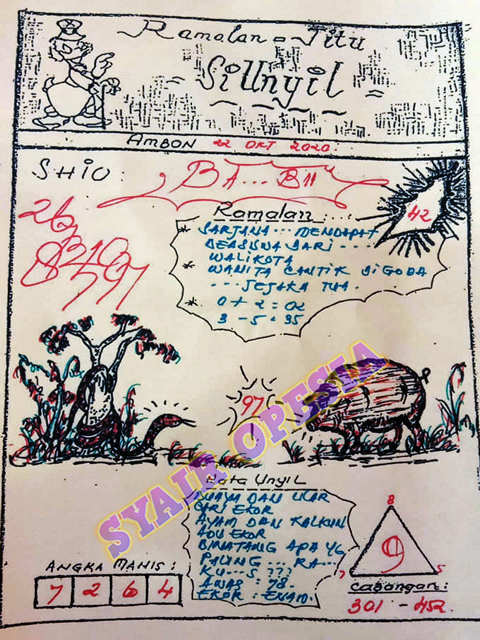 Ramalan - Jitu
Si Unyil
AMBON 22 OKT 2020
SHIO :
BA... BII
42
263
8310
8597
Ramalan :
* SARJANA ... MENDAPAT
BEASISWA DARI ...
WALIKOTA
* WANITA CANTIK DIGODA
... JEJAKA TUA.
* 0 + 2 = 02
3 - 5 = 35
97
SYAIR OPESIA
Kata Unyil
BUAYA DAN ULAR
ADU EKOR
BINATANG APA YG
PALING ... RA...
KU...S ???
AWAS : 98.
EKOR : ENAM.
ANGKA MANIS :
7 2 6 4
8
9
7 5
Cabangan :
301 - 452